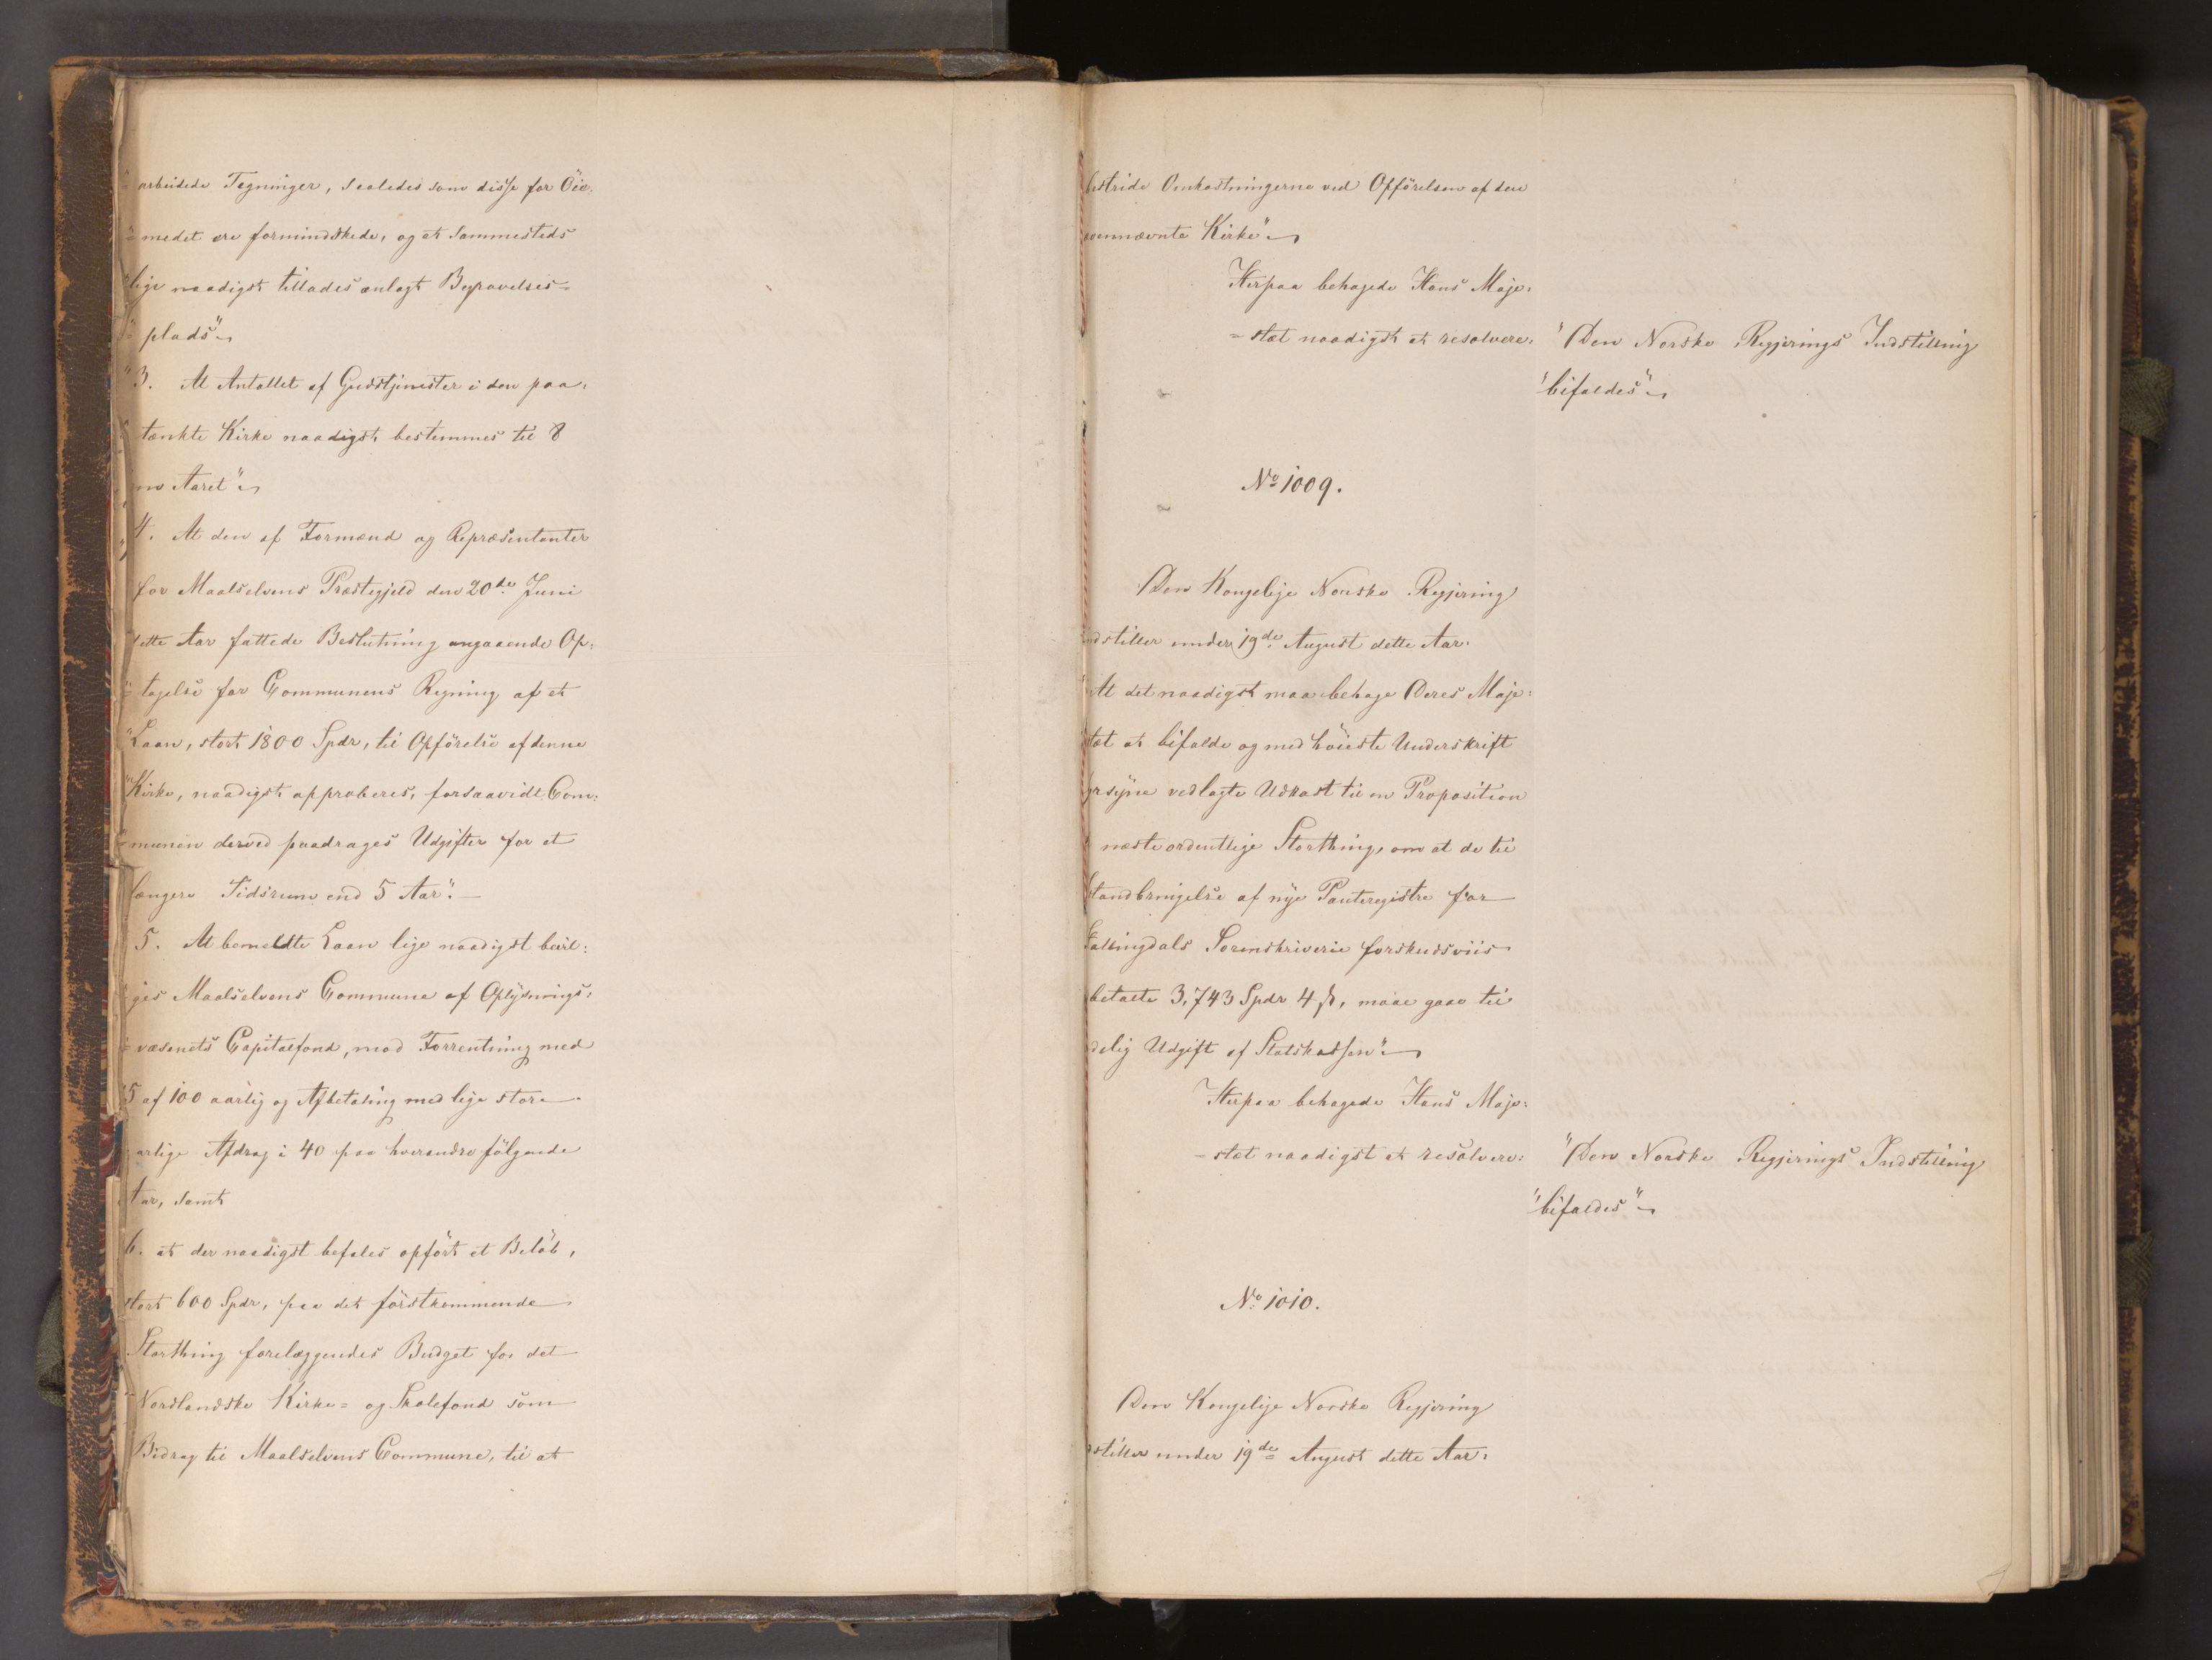 "arbeidede Tegninger, saaledes som disse for Öie-
"medet ere formindskede, og at sammesteds
"lige naadigst tillades anlagt Begravelses=
"plads"
"3. At Antallet af Gudstjenester i den paa-
tænkte Kirke naadigst bestemmes til 8
om Aaret"
"4. At den af Formænd og Repræsentanter
for Maalselvens Præstegjeld den 20de Juni
dette Aar fattede Beslutning angaaende Op-
"tagelse for Communens Regning af et
"Laan, stort 1800 Spdr, til Opförelse af denne
"Kirke, naadigst approberes, forsaavidt Com-
munen derved paadrages Udgifter for et
længere Tidsrum end 5 Aar".
5. At bemeldte Laan lige naadigst bevil-
ges Maalselvens Commune af Oplysnings-
væsenets Capitalfond, mod Forrentning med
"5 af 100 aarlig og Afbetaling med lige store
aarlige Afdrag i 40 paa hverandre fölgende
Aar, samt
6. at der naadigst befales opfört et Belöb,
stort 600 Spdr, paa det förstkommende
Storthing forelæggendes Budget for det
Nordlandske Kirke= og Skolefond som
Bidrag til Maalselvens Commune, til at
bestride Omkostningerne ved Opförelsen af den
ovennævnte Kirke"
Herpaa behagede Hans Maje-
=stæt naadigst at resolvere: "Den Norske Regjerings Indstilling
"bifaldes"
No 1009.
Den Kongelige Norske Regjering
indstiller under 19de August dette Aar:
"At det naadigst maa behage Deres Maje-
stæt at bifalde og med höieste Underskrift
forsyne vedlagte Udkast til en Proposition
næste ordentlige Storthing, om at de til
Istandbringelse af nye Panteregistre for
Hallingdals Sorenskriverie forskudsviis
betalte 3,743 Spdr 4 ß, maae gaae til
endelig Udgift af Statskassen"
Herpaa behagede Hans Maje-
=stæt naadigst at resolvere: "Den Norske Regjerings Indstilling
"bifaldes"
No 1010.
Den Kongelige Norske Regjering
indstiller under 19de August dette Aar: